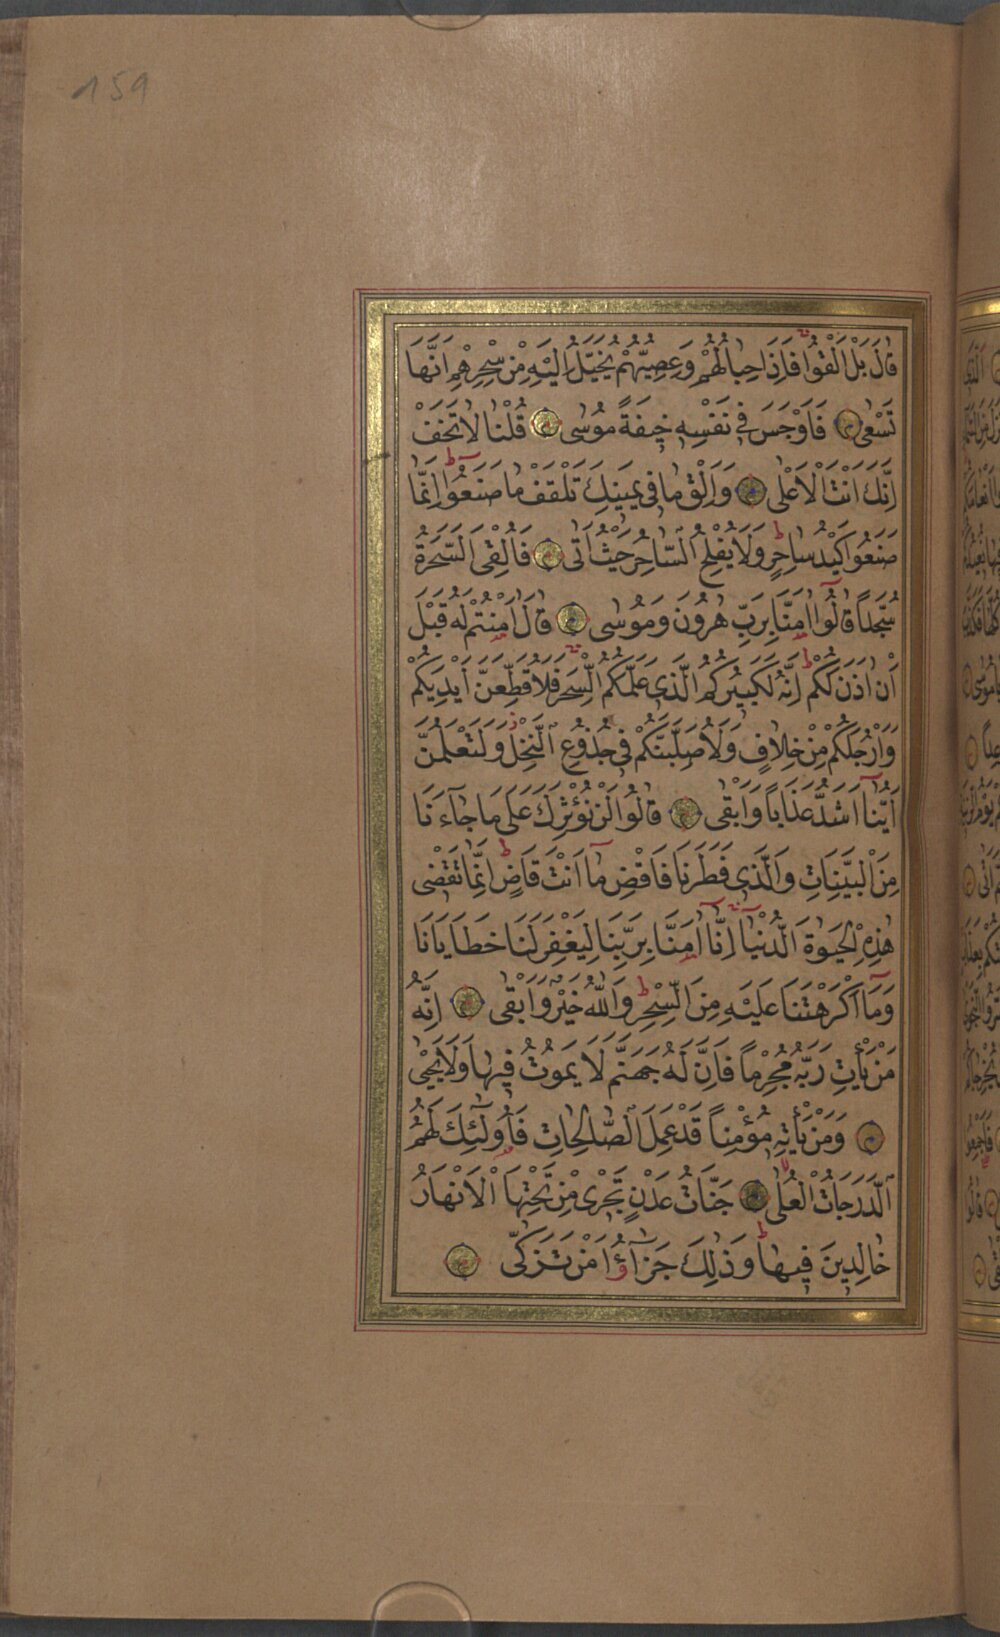 159
قَالَ بَلْ اَلْقُوا فَاِذَا حِبَالُهُمْ وَعِصِيُّهُمْ يُخَيَّلُ اِلَيْهِ مِنْ سِحْرِهِمْ اَنَّهَا
تَسْعٰى فَاَوْجَسَ فِى نَفْسِهٖ خِيفَةً مُوسٰى قُلْنَا لَا تَخَفْ
اِنَّكَ اَنْتَ الْاَعْلٰى وَاَلْقِ مَا فِى يَمِينِكَ تَلْقَفْ مَا صَنَعُوا اِنَّمَا
صَنَعُوا كَيْدُ سَاحِرٍ وَلَا يُفْلِحُ السَّاحِرُ حَيْثُ اَتٰى فَاُلْقِىَ السَّحَرَةُ
سُجَّدًا قَالُوا اٰمَنَّا بِرَبِّ هٰرُونَ وَمُوسٰى قَالَ اٰمَنْتُمْ لَهُ قَبْلَ
اَنْ اٰذَنَ لَكُمْ اِنَّهُ لَكَبِيرُكُمُ الَّذِى عَلَّمَكُمُ السِّحْرَ فَلَاُقَطِّعَنَّ اَيْدِيَكُمْ
وَاَرْجُلَكُمْ مِنْ خِلَافٍ وَلَاُصَلِّبَنَّكُمْ فِى جُذُوعِ النَّخْلِ وَلَتَعْلَمُنَّ
اَيُّنَا اَشَدُّ عَذَابًا وَاَبْقٰى قَالُوا لَنْ نُؤْثِرَكَ عَلٰى مَا جَاۤءَنَا
مِنَ الْبَيِّنَاتِ وَالَّذِى فَطَرَنَا فَاقْضِ مَا اَنْتَ قَاضٍ اِنَّمَا تَقْضِى
هٰذِهِ الْحَيٰوةَ الدُّنْيَا اِنَّا اٰمَنَّا بِرَبِّنَا لِيَغْفِرَ لَنَا خَطَايَانَا
وَمَا اَكْرَهْتَنَا عَلَيْهِ مِنَ السِّحْرِ وَاللّٰهُ خَيْرٌ وَاَبْقٰى اِنَّهُ
مَنْ يَأْتِ رَبَّهُ مُجْرِمًا فَاِنَّ لَهُ جَهَنَّمَ لَا يَمُوتُ فِيهَا وَلَا يَحْيٰى
وَمَنْ يَأْتِهٖ مُؤْمِنًا قَدْ عَمِلَ الصَّالِحَاتِ فَاُولٰۤئِكَ لَهُمُ
الدَّرَجَاتُ الْعُلٰى جَنَّاتُ عَدْنٍ تَجْرِى مِنْ تَحْتِهَا الْاَنْهَارُ
خَالِدِينَ فِيهَا وَذٰلِكَ جَزٰۤؤُا مَنْ تَزَكّٰى